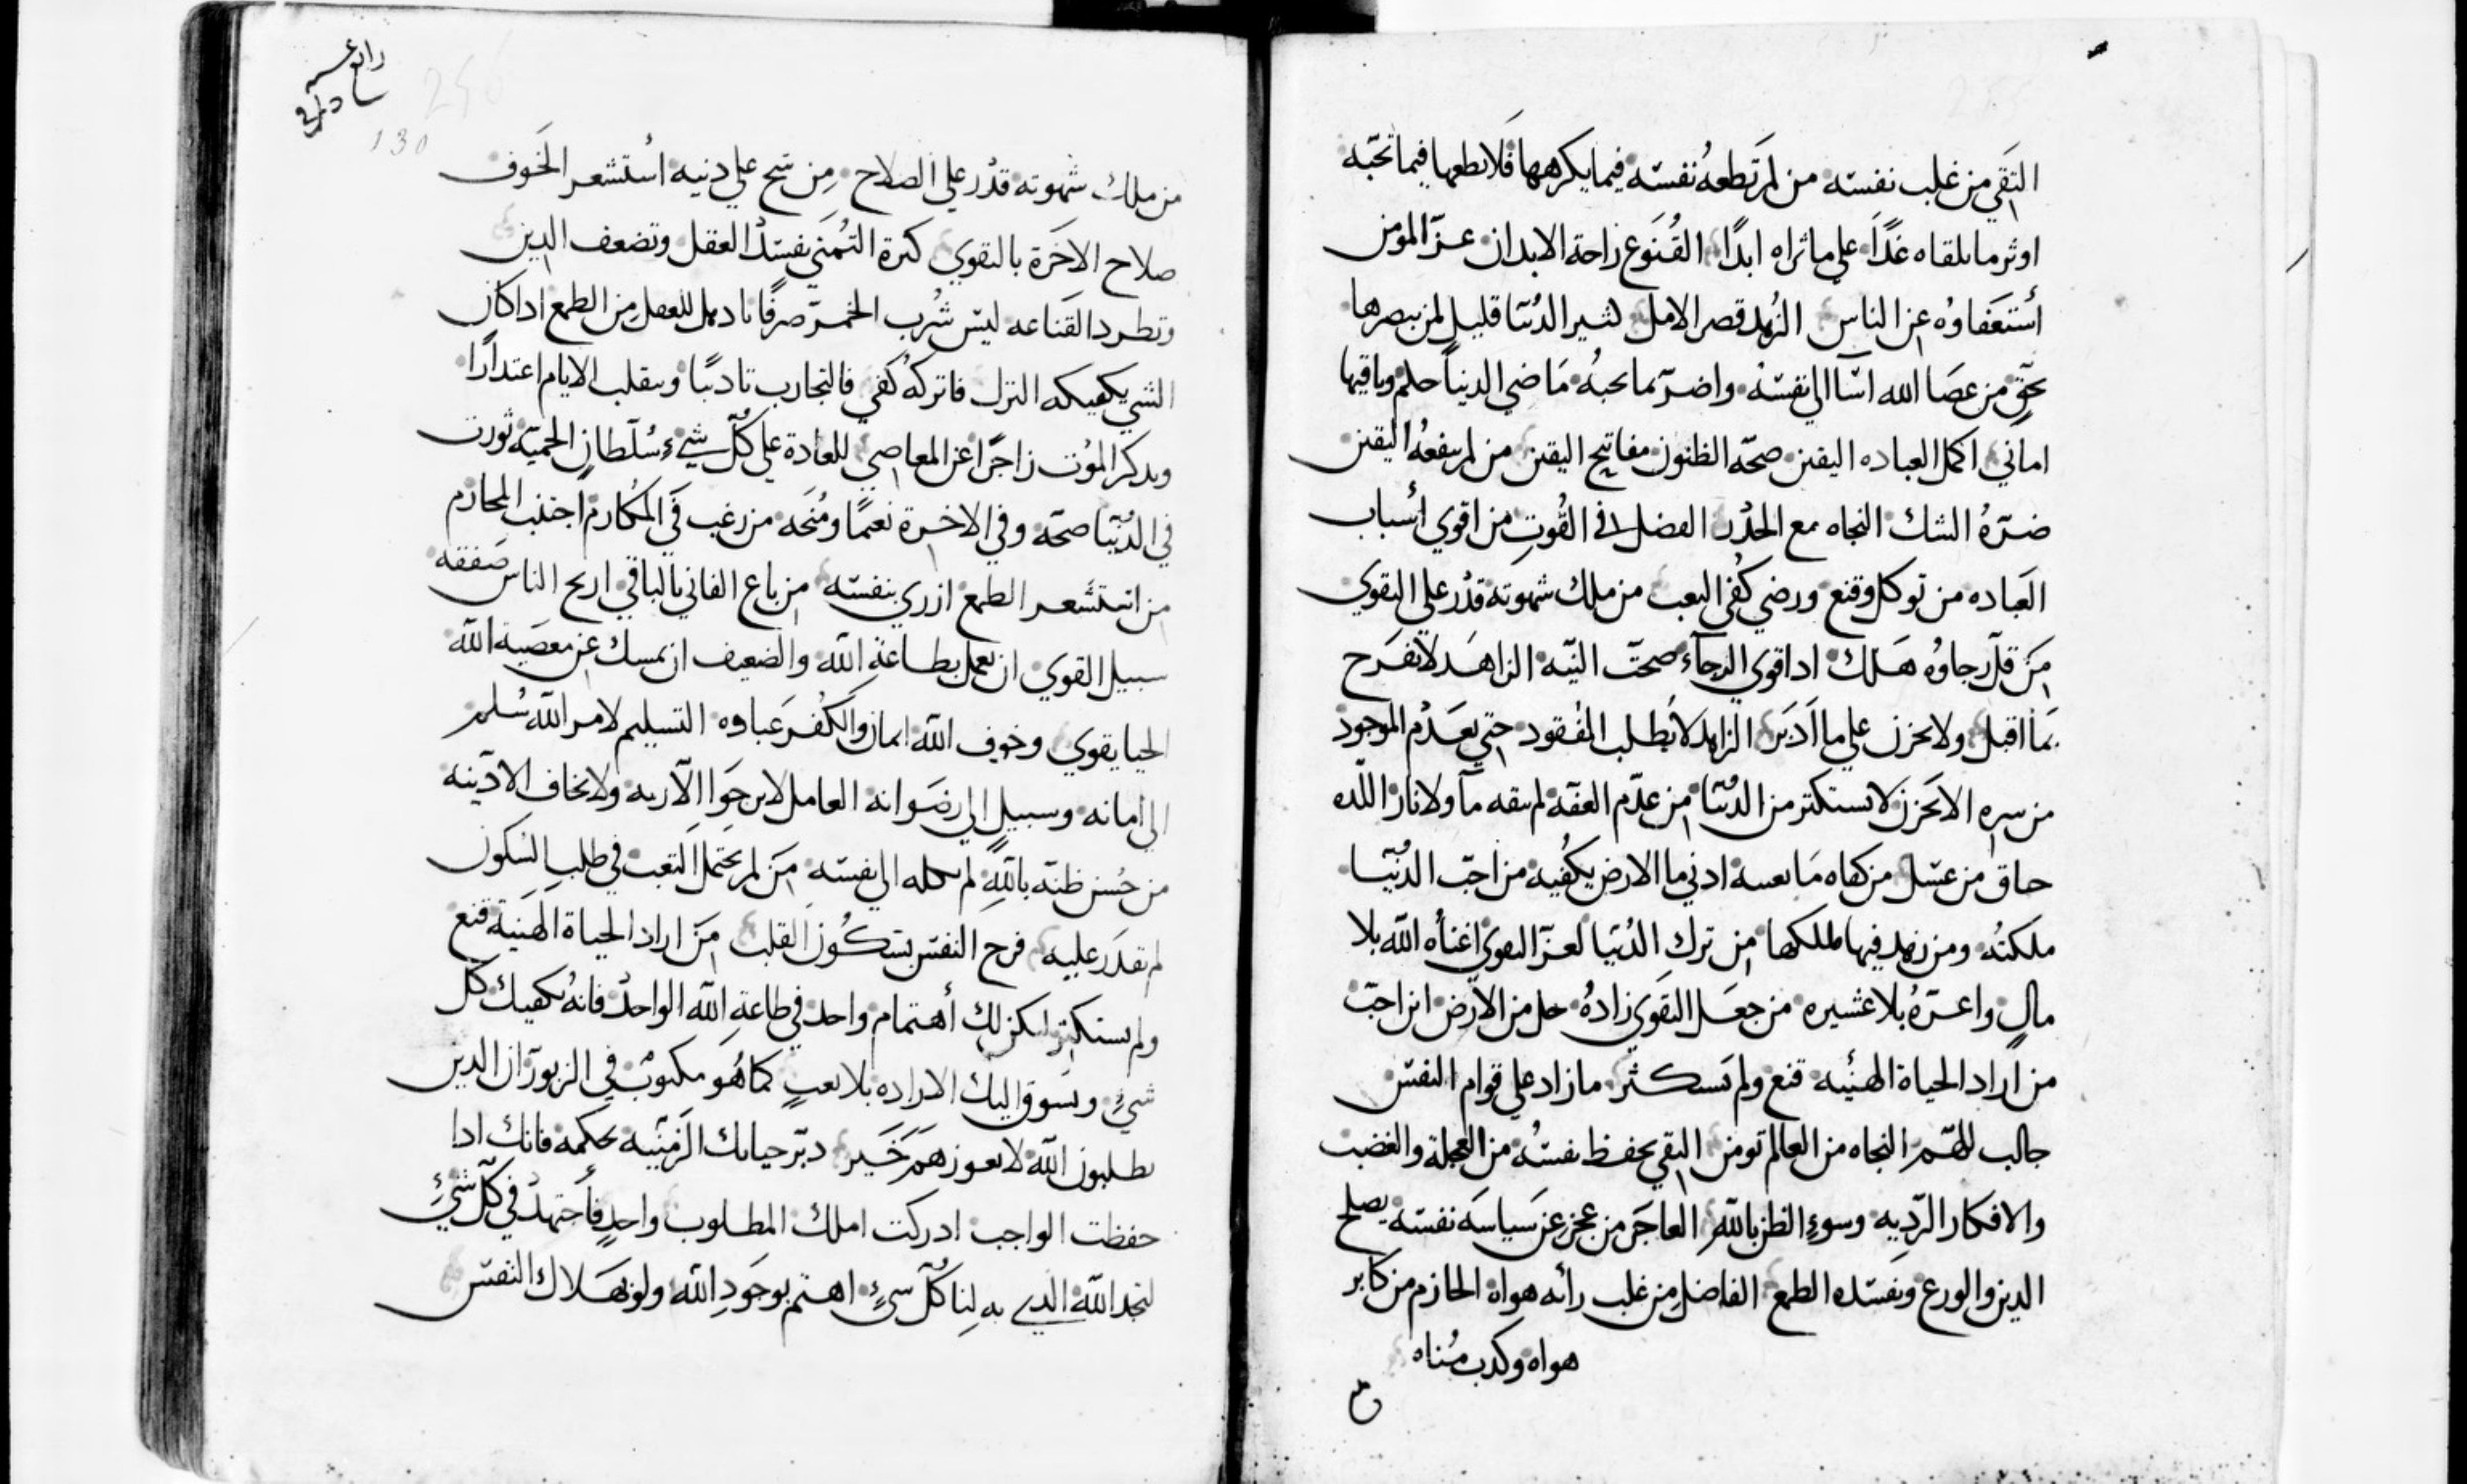 التقي من غلب نفسته من لم تطعهُ نفسته فيما يكرهها فلا يطعها فيما تحبّه
اوثر ما يلقاه غدًا علي ما تراه ابدًا القُنوع راحة الابدان عزّ المومن
أستعفاوُه عن الناس الزُهد قصر الامل كثير الدُنيا قليل لمن يبصرها
بحقٍ من عصا الله اسا الي نفسته واضرّ بما يحبهُ مَا ضي الدنيا حلم وباقيها
اماني اكمل العباده اليقين صحّه الظنون مفاتيح اليقين من لم ينفعهُ اليقين
ضرّهُ الشك النجاه مع الحدر الفضل في القُوتِ من اقوي أسباب
العَباده من توكل وقنع ورضي كُفي التعب من ملك شهوته قدُر علي التقوي
مَن قلّ رجاوُه هَلك ادا قوي الرجآء صحتّ النيّه الزاهَد لا يفرَح
بمَا اقبل ولا يحزن علي ما اَدبَر الزاهد لا يُطلب المفُقود حتي يعَدُم الموجود
من سره الا يَحزن لا يستكتر من الدُنيا من عدّم
من كفاه مَا ادني ما الارض يكُفيه من احبّ الدُنيا
ملكتُه ومن زهد فيها ملكها من ترك الدُنيا لعزّ التقوي اغناُه الله بلا
مالٍ واعزّهُ بلا عشيره من جعَل التقَوي زادهُ من الارض اين احبّ
من اراد الحياة الهنُيه قنع ولم يَستكثر ما زاد علي قوام النفسّ
جالب للهّم النجاه من العالم تومن التقي يحفظ نفستُه من العجلة والغضب
والافكار الرّديه وسوءِ الظن بالله العاجَز من عجز عن سَياسَه نفسته يصلح
الدين والورع ويفسّده الطمع الفاضل من غلب رأيه هواه الحازم من كابر
هواه وكدب مُناه
130
من ملك شهوته قدُر علي الصلاح مِن شح علي دينه اسُتشعر الخَوف
صلاح الاخَرة بالتقوي كترة التُمَني يفسّدُ العقل وتضعف الدين
وتطرد القناعه ليسّ شُرب الخمرّ صرفًا للعقل مِن الطمع ادا كان
الشي يكفيكه الترك فاتركهُ كفي فالتجارب تادبًيا وبتقلب الايام اعتدارًا
وبدكر المُوت زاجرًا عن المعاصي للعادة علي كُلّ شيء سُلطان الحميّه تورت
في الدُنيّا صحّه وفي الاخرة نعمًا ومُنَحه من رغب في المكَارم اجتنب المحارم
من استشعر الطمع ازري بنفسته من باع الفاني بالباقي اربح الناس صَفقه
سبيل القوي ان يعمل بطاعةِ الله والضعيف ان يمسك عن معصَية الله
الحيا يقوي وخوف الله ايمان والكفُر عباوه التسليم لامر الله سُلمر
الي امانه وسبيل الي رضَوانه العامل لا يرجَوا الا ربه ولا يخاف الا دينه
من حُسن ظنّه باللهِ لم يكله الي نفسّه مَن لم يحَتمل التعب في طلب السّكون
لم يقدَر عليه فرح النفسّ بسّكُون القلب مَن اراد الحياة الهَنية قنع
ولم يستكتر ليكن لك أهتمام واحد في طاعةِ الله الواحد فانهُ يكفيك كل
شيٍ ويسَوق اليك الاراده بلا تعبٍ كما هُو مكتوبُ في الزبور ان الدين
يطلبون الله لا يعوزهَم خَير دبّر حياتك الزمنيّه بحكمه فانك ادا
حفظت الواجب ادركت املك المطلوب واحدٍ فأجتهدُ في كلّ شيءٍ
لنجد الله الدي به لِنا كُلّ شيءٍ اهتم بوجَودِ الله ولو بهَلاك النفسّ